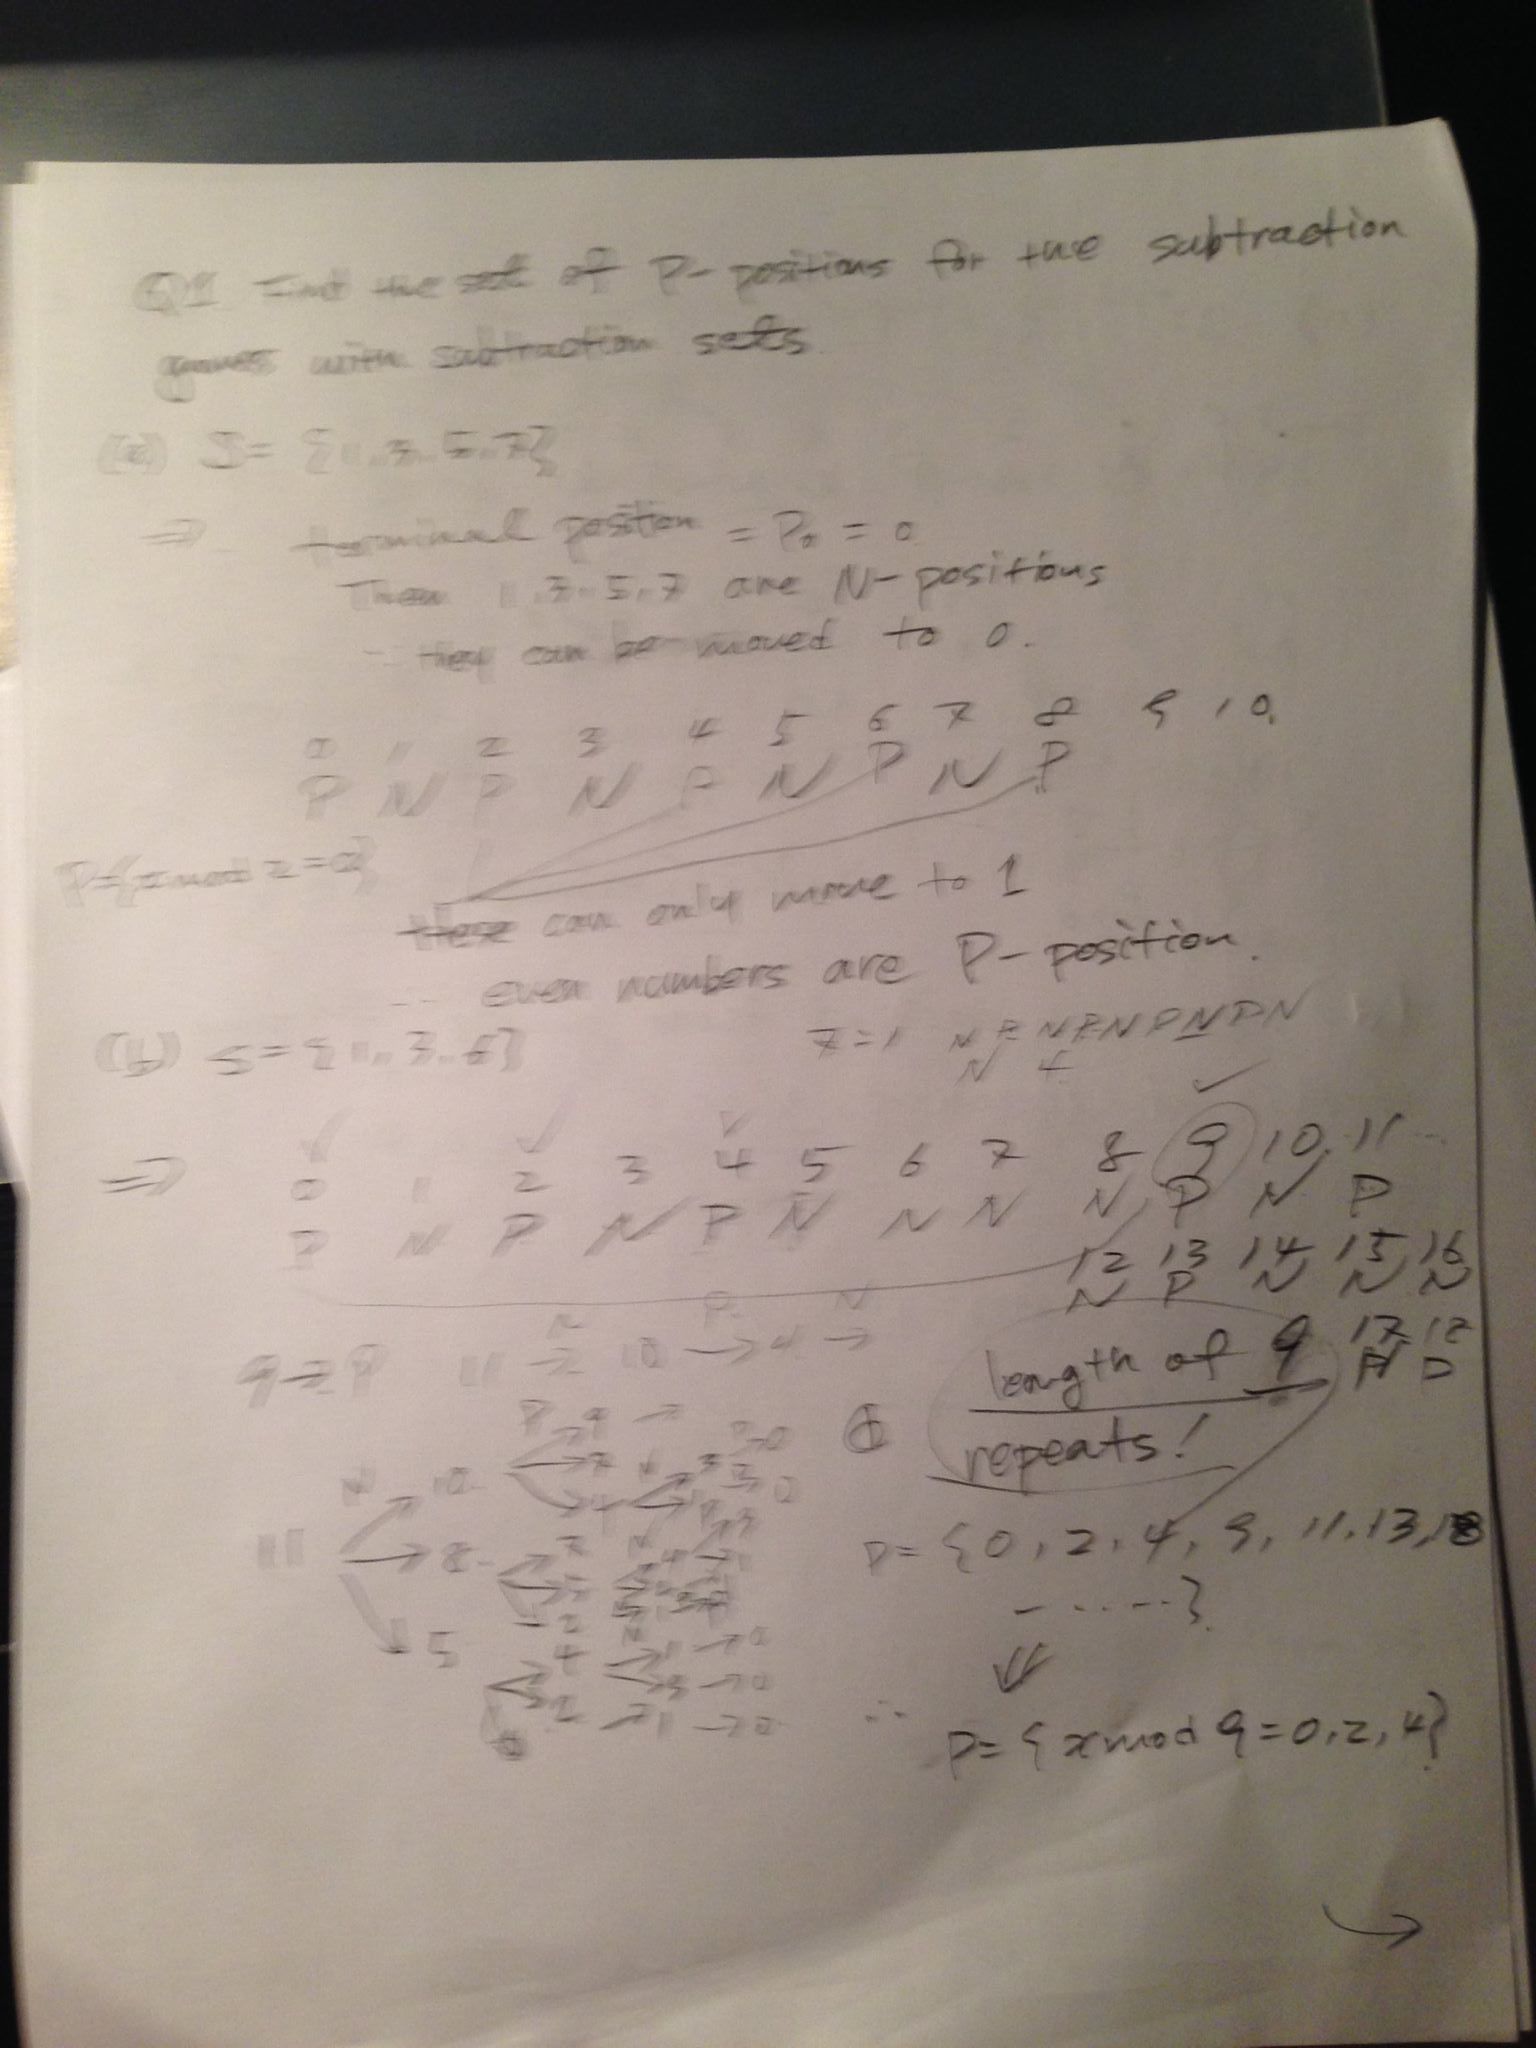 Q1 Find the set of P-positions for the subtraction
games with subtraction sets
(a) S = {1, 3, 5, 7}
⇒ terminal position = P₀ = 0
Then 1, 3, 5, 7 are N-positions
they can be moved to 0.
0 1 2 3 4 5 6 7 8 9 10
P N P N P N P N P
P={x mod 2 = 0}
these can only move to 1
∴ even numbers are P-position.
(b) S = {1, 3, 6}
7=1
⇒ 0 1 2 3 4 5 6 7 8 9 10 11
P N P N P N N N N P N P
12 13 14 15 16
N P N N N
17 18
11 → 10 → 4 →
length of 9
repeats!
11
10
8
5
P= {0, 2, 4, 9, 11, 13, 18
- ....}
∴ P= {x mod 9 = 0, 2, 4}